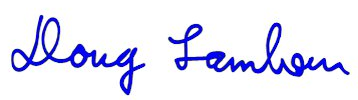 Doug Lambon